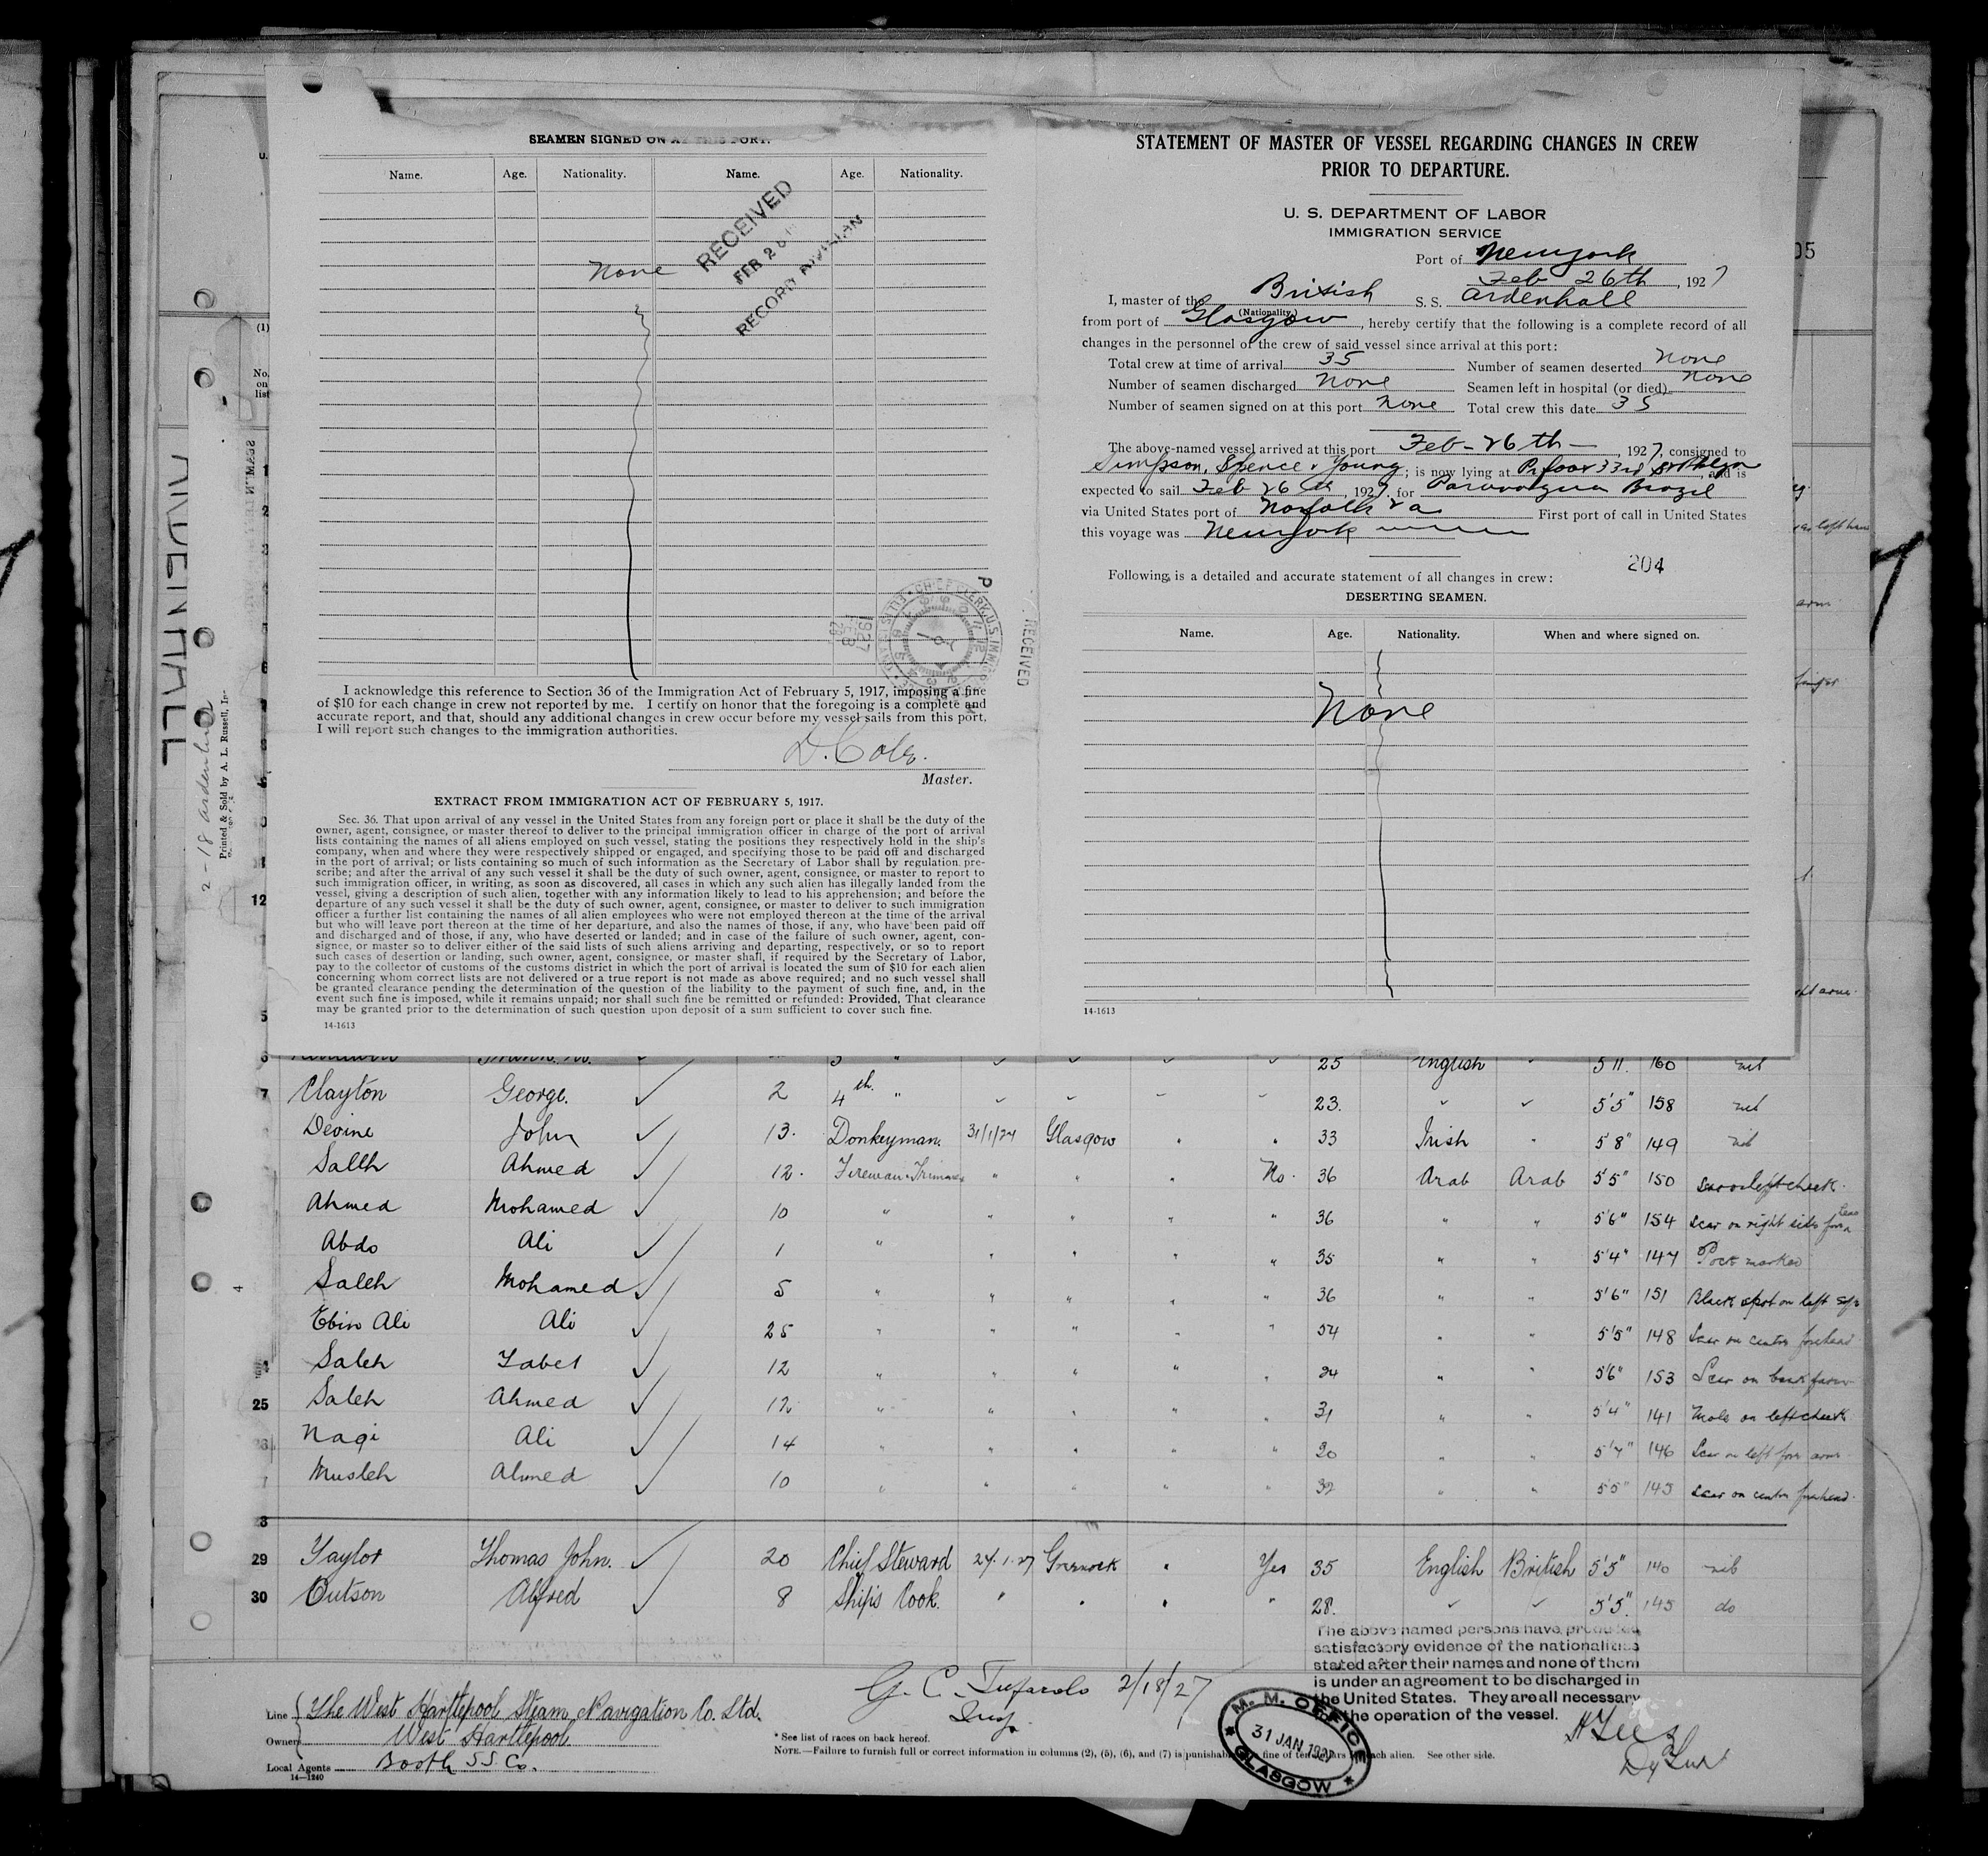 SEAMEN SIGNED ON AT THIS PORT.
Name. Age. Nationality. Name. Age. Nationality.
None
RECEIVED
FEB 26
RECORD DIVISION
1927
FEB
26
RECEIVED
I acknowledge this reference to Section 36 of the Immigration Act of February 5, 1917, imposing a fine
of $10 for each change in crew not reported by me. I certify on honor that the foregoing is a complete and
accurate report, and that, should any additional changes in crew occur before my vessel sails from this port,
I will report such changes to the immigration authorities.
D. Cole.
Master.
EXTRACT FROM IMMIGRATION ACT OF FEBRUARY 5, 1917.
Sec. 36. That upon arrival of any vessel in the United States from any foreign port or place it shall be the duty of the
owner, agent, consignee, or master thereof to deliver to the principal immigration officer in charge of the port of arrival
lists containing the names of all aliens employed on such vessel, stating the positions they respectively hold in the ship's
company, when and where they were respectively shipped or engaged, and specifying those to be paid off and discharged
in the port of arrival; or lists containing so much of such information as the Secretary of Labor shall by regulation pre-
scribe; and after the arrival of any such vessel it shall be the duty of such owner, agent, consignee, or master to report to
such immigration officer, in writing, as soon as discovered, all cases in which any such alien has illegally landed from the
vessel, giving a description of such alien, together with any information likely to lead to his apprehension; and before the
departure of any such vessel it shall be the duty of such owner, agent, consignee, or master to deliver to such immigration
officer a further list containing the names of all alien employees who were not employed thereon at the time of the arrival
but who will leave port thereon at the time of her departure, and also the names of those, if any, who have been paid off
and discharged and of those, if any, who have deserted or landed; and in case of the failure of such owner, agent, con-
signee, or master so to deliver either of the said lists of such aliens arriving and departing, respectively, or so to report
such cases of desertion or landing, such owner, agent, consignee, or master shall, if required by the Secretary of Labor,
pay to the collector of customs of the customs district in which the port of arrival is located the sum of $10 for each alien
concerning whom correct lists are not delivered or a true report is not made as above required; and no such vessel shall
be granted clearance pending the determination of the question of the liability to the payment of such fine, and, in the
event such fine is imposed, while it remains unpaid; nor shall such fine be remitted or refunded: Provided, That clearance
may be granted prior to the determination of such question upon deposit of a sum sufficient to cover such fine.
14-1613
STATEMENT OF MASTER OF VESSEL REGARDING CHANGES IN CREW
PRIOR TO DEPARTURE.
U. S. DEPARTMENT OF LABOR
IMMIGRATION SERVICE
Port of New York
Feb 26th, 1927
I, master of the British S. S. Ardenhall
(Nationality.)
from port of Glasgow, hereby certify that the following is a complete record of all
changes in the personnel of the crew of said vessel since arrival at this port:
Total crew at time of arrival 35 Number of seamen deserted None
Number of seamen discharged None Seamen left in hospital (or died) None
Number of seamen signed on at this port None Total crew this date 35
The above-named vessel arrived at this port Feb-26th-, 1927, consigned to
Simpson, Spence & Young; is now lying at 33rd, and is
expected to sail Feb 26th, 1927, for Brazil
via United States port of Norfolk Va First port of call in United States
this voyage was New York
204
Following is a detailed and accurate statement of all changes in crew:
DESERTING SEAMEN.
Name. Age. Nationality. When and where signed on.
None
14-1613
ARDENHALL
2-18 Ardenhall
Printed & Sold by A. L. Russell, Inc
25 English 5'11 160 nil
Clayton George. 2 4th " 23. 5'5" 158 nil
Devine John 13. Donkeyman. 31/1/27 Glasgow 33 Irish " 5'8" 149 nil
Saleh Ahmed 12. Fireman & Trimmer " " " No. 36 Arab Arab 5'5" 150 scar on left cheek.
Ahmed Mohamed 10 " " " " " 36 " " 5'6" 154 Scar on right side
Abdo Ali 1 " " " " " 35 " " 5'4" 147 Pock marked
Saleh Mohamed 5 " " " " " 36 " " 5'6" 151 Black spot on left
Ebin Ali Ali 25 " " " " " 54 " " 5'5" 148 Scar on centre forehead
Saleh 12 " " " " " 24 " " 5'6" 153 Scar on
25 Saleh Ahmed 12 " " " " " 31 " " 5'4" 141 Mole on left cheek
Nagi Ali 14 " " " " " 20 " " 5'7" 146 Scar on left fore arm
Musleh Ahmed 10 " " " " " 32 " " 5'5" 145 Scar on centre forehead.
29 Taylor Thomas John. 20 Chief Steward 27.1.27 Greenock " Yes 35 English British 5'5" 140 nil
30 Outson Alfred 8 Ships Cook. " " " " 28. 5'5". 145 do
The above named persons have produced
satisfactory evidence of the nationalities
stated after their names and none of them
is under an agreement to be discharged in
the United States. They are all necessary
for the operation of the vessel.
Line The West Hartlepool Steam Navigation Co. Ltd.
Owner West Hartlepool
Local Agents Booth SS Co.
14-1240
2/18/27
Insp.
* See list of races on back hereof.
NOTE.—Failure to furnish full or correct information in columns (2), (5), (6), and (7) is punishable by a fine of ten dollars for each alien. See other side.
M. M. OFFICE
31 JAN 1927
GLASGOW